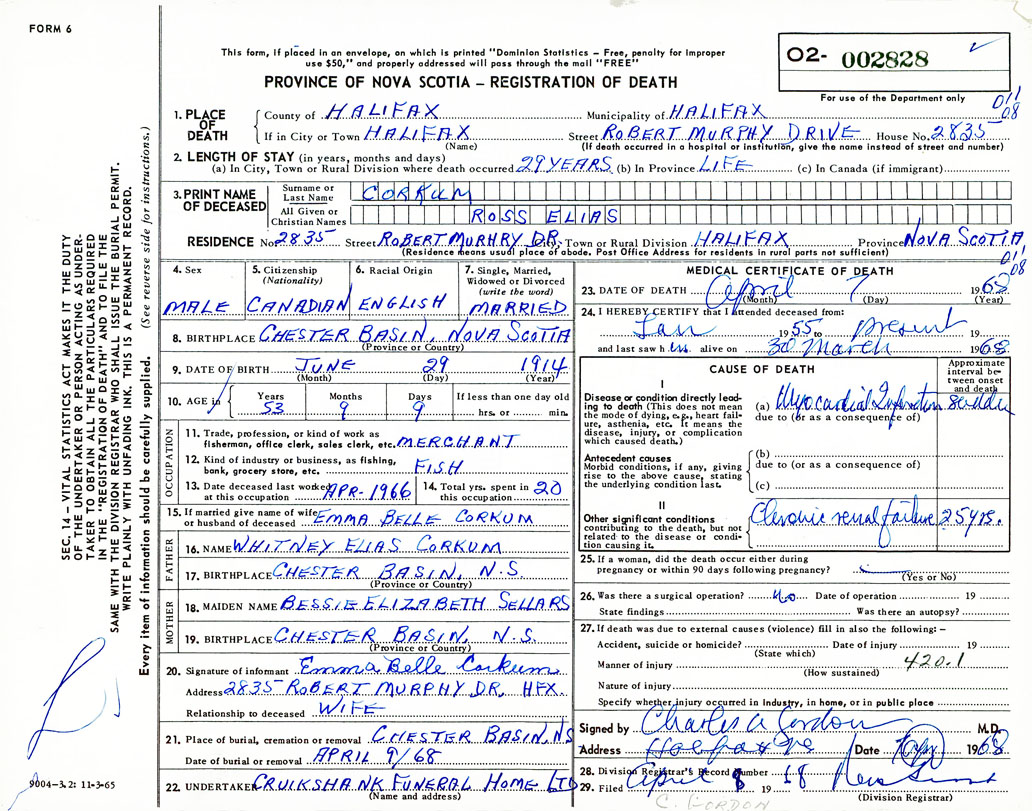 FORM 6
This form, if placed in an envelope, on which is printed "Dominion Statistics – Free, penalty for improper
use $50," and properly addressed will pass through the mail "FREE"
PROVINCE OF NOVA SCOTIA – REGISTRATION OF DEATH
02- 002828
For use of the Department only
011
08
SEC. 14 – VITAL STATISTICS ACT MAKES IT THE DUTY
OF THE UNDERTAKER OR PERSON ACTING AS UNDER-
TAKER TO OBTAIN ALL THE PARTICULARS REQUIRED
IN THE "REGISTRATION OF DEATH" AND TO FILE THE
SAME WITH THE DIVISION REGISTRAR WHO SHALL ISSUE THE BURIAL PERMIT.
WRITE PLAINLY WITH UNFADING INK. THIS IS A PERMANENT RECORD.
Every item of information should be carefully supplied. (See reverse side for instructions.)
1. PLACE OF DEATH
County of HALIFAX Municipality of HALIFAX
If in City or Town HALIFAX Street ROBERT MURPHY DRIVE House No. 2835
(Name) (If death occurred in a hospital or institution, give the name instead of street and number)
2. LENGTH OF STAY (in years, months and days)
(a) In City, Town or Rural Division where death occurred 29 YEARS (b) In Province LIFE (c) In Canada (if immigrant)
3. PRINT NAME OF DECEASED
Surname or Last Name CORKUM
All Given or Christian Names ROSS ELIAS
RESIDENCE No. 2835 Street ROBERT MURHRY DR. City, Town or Rural Division HALIFAX Province NOVA SCOTIA
(Residence means usual place of abode. Post Office Address for residents in rural parts not sufficient)
011
08
4. Sex MALE
5. Citizenship (Nationality) CANADIAN
6. Racial Origin ENGLISH
7. Single, Married, Widowed or Divorced (write the word) MARRIED
8. BIRTHPLACE CHESTER BASIN, NOVA SCOTIA
(Province or Country)
9. DATE OF BIRTH JUNE 29 1914
(Month) (Day) (Year)
10. AGE in Years 53 Months 9 Days 9 If less than one day old
hrs. or min.
OCCUPATION
11. Trade, profession, or kind of work as
fisherman, office clerk, sales clerk, etc. MERCHANT
12. Kind of industry or business, as fishing,
bank, grocery store, etc. FISH
13. Date deceased last worked
at this occupation APR-1966
14. Total yrs. spent in
this occupation 20
15. If married give name of wife
or husband of deceased EMMA BELLE CORKUM
FATHER
16. NAME WHITNEY ELIAS CORKUM
17. BIRTHPLACE CHESTER BASIN, N.S.
(Province or Country)
MOTHER
18. MAIDEN NAME BESSIE ELIZABETH SELLARS
19. BIRTHPLACE CHESTER BASIN, N.S.
(Province or Country)
20. Signature of informant Emma Belle Corkum
Address 2835 ROBERT MURPHY DR, HFX.
Relationship to deceased WIFE
21. Place of burial, cremation or removal CHESTER BASIN, NS
Date of burial or removal APRIL 9/68
22. UNDERTAKER CRUIKSHANK FUNERAL HOME LTD
(Name and address)
9004–3.2: 11-3-65
MEDICAL CERTIFICATE OF DEATH
23. DATE OF DEATH April 7 1968
(Month) (Day) (Year)
24. I HEREBY CERTIFY that I attended deceased from:
Jan 1955 to present 19
and last saw h im alive on 30 March 1968
CAUSE OF DEATH
Approximate interval between onset and death
I
Disease or condition directly lead-
ing to death (This does not
mean the mode of dying, e.g., heart fail-
ure, asthenia, etc. It means the
disease, injury, or complication
which caused death.)
(a) Myocardial Infarction sudden
due to (or as a consequence of)
Antecedent causes
Morbid conditions, if any, giving
rise to the above cause, stating
the underlying condition last.
(b)
due to (or as a consequence of)
(c)
II
Other significant conditions
contributing to the death, but not
related to the disease or condi-
tion causing it.
Chronic renal failure 25 yrs.
25. If a woman, did the death occur either during
pregnancy or within 90 days following pregnancy?
(Yes or No)
26. Was there a surgical operation? No Date of operation 19
State findings Was there an autopsy?
27. If death was due to external causes (violence) fill in also the following: –
Accident, suicide or homicide? Date of injury 19
(State which)
Manner of injury 420.1
(How sustained)
Nature of injury
Specify whether injury occurred in Industry, in home, or in public place
Signed by Charles A Gordon M.D.
Address Halifax NS Date 1968
28. Division Registrar's Record Number
29. Filed April 8 1968
(Division Registrar)
C. GORDON